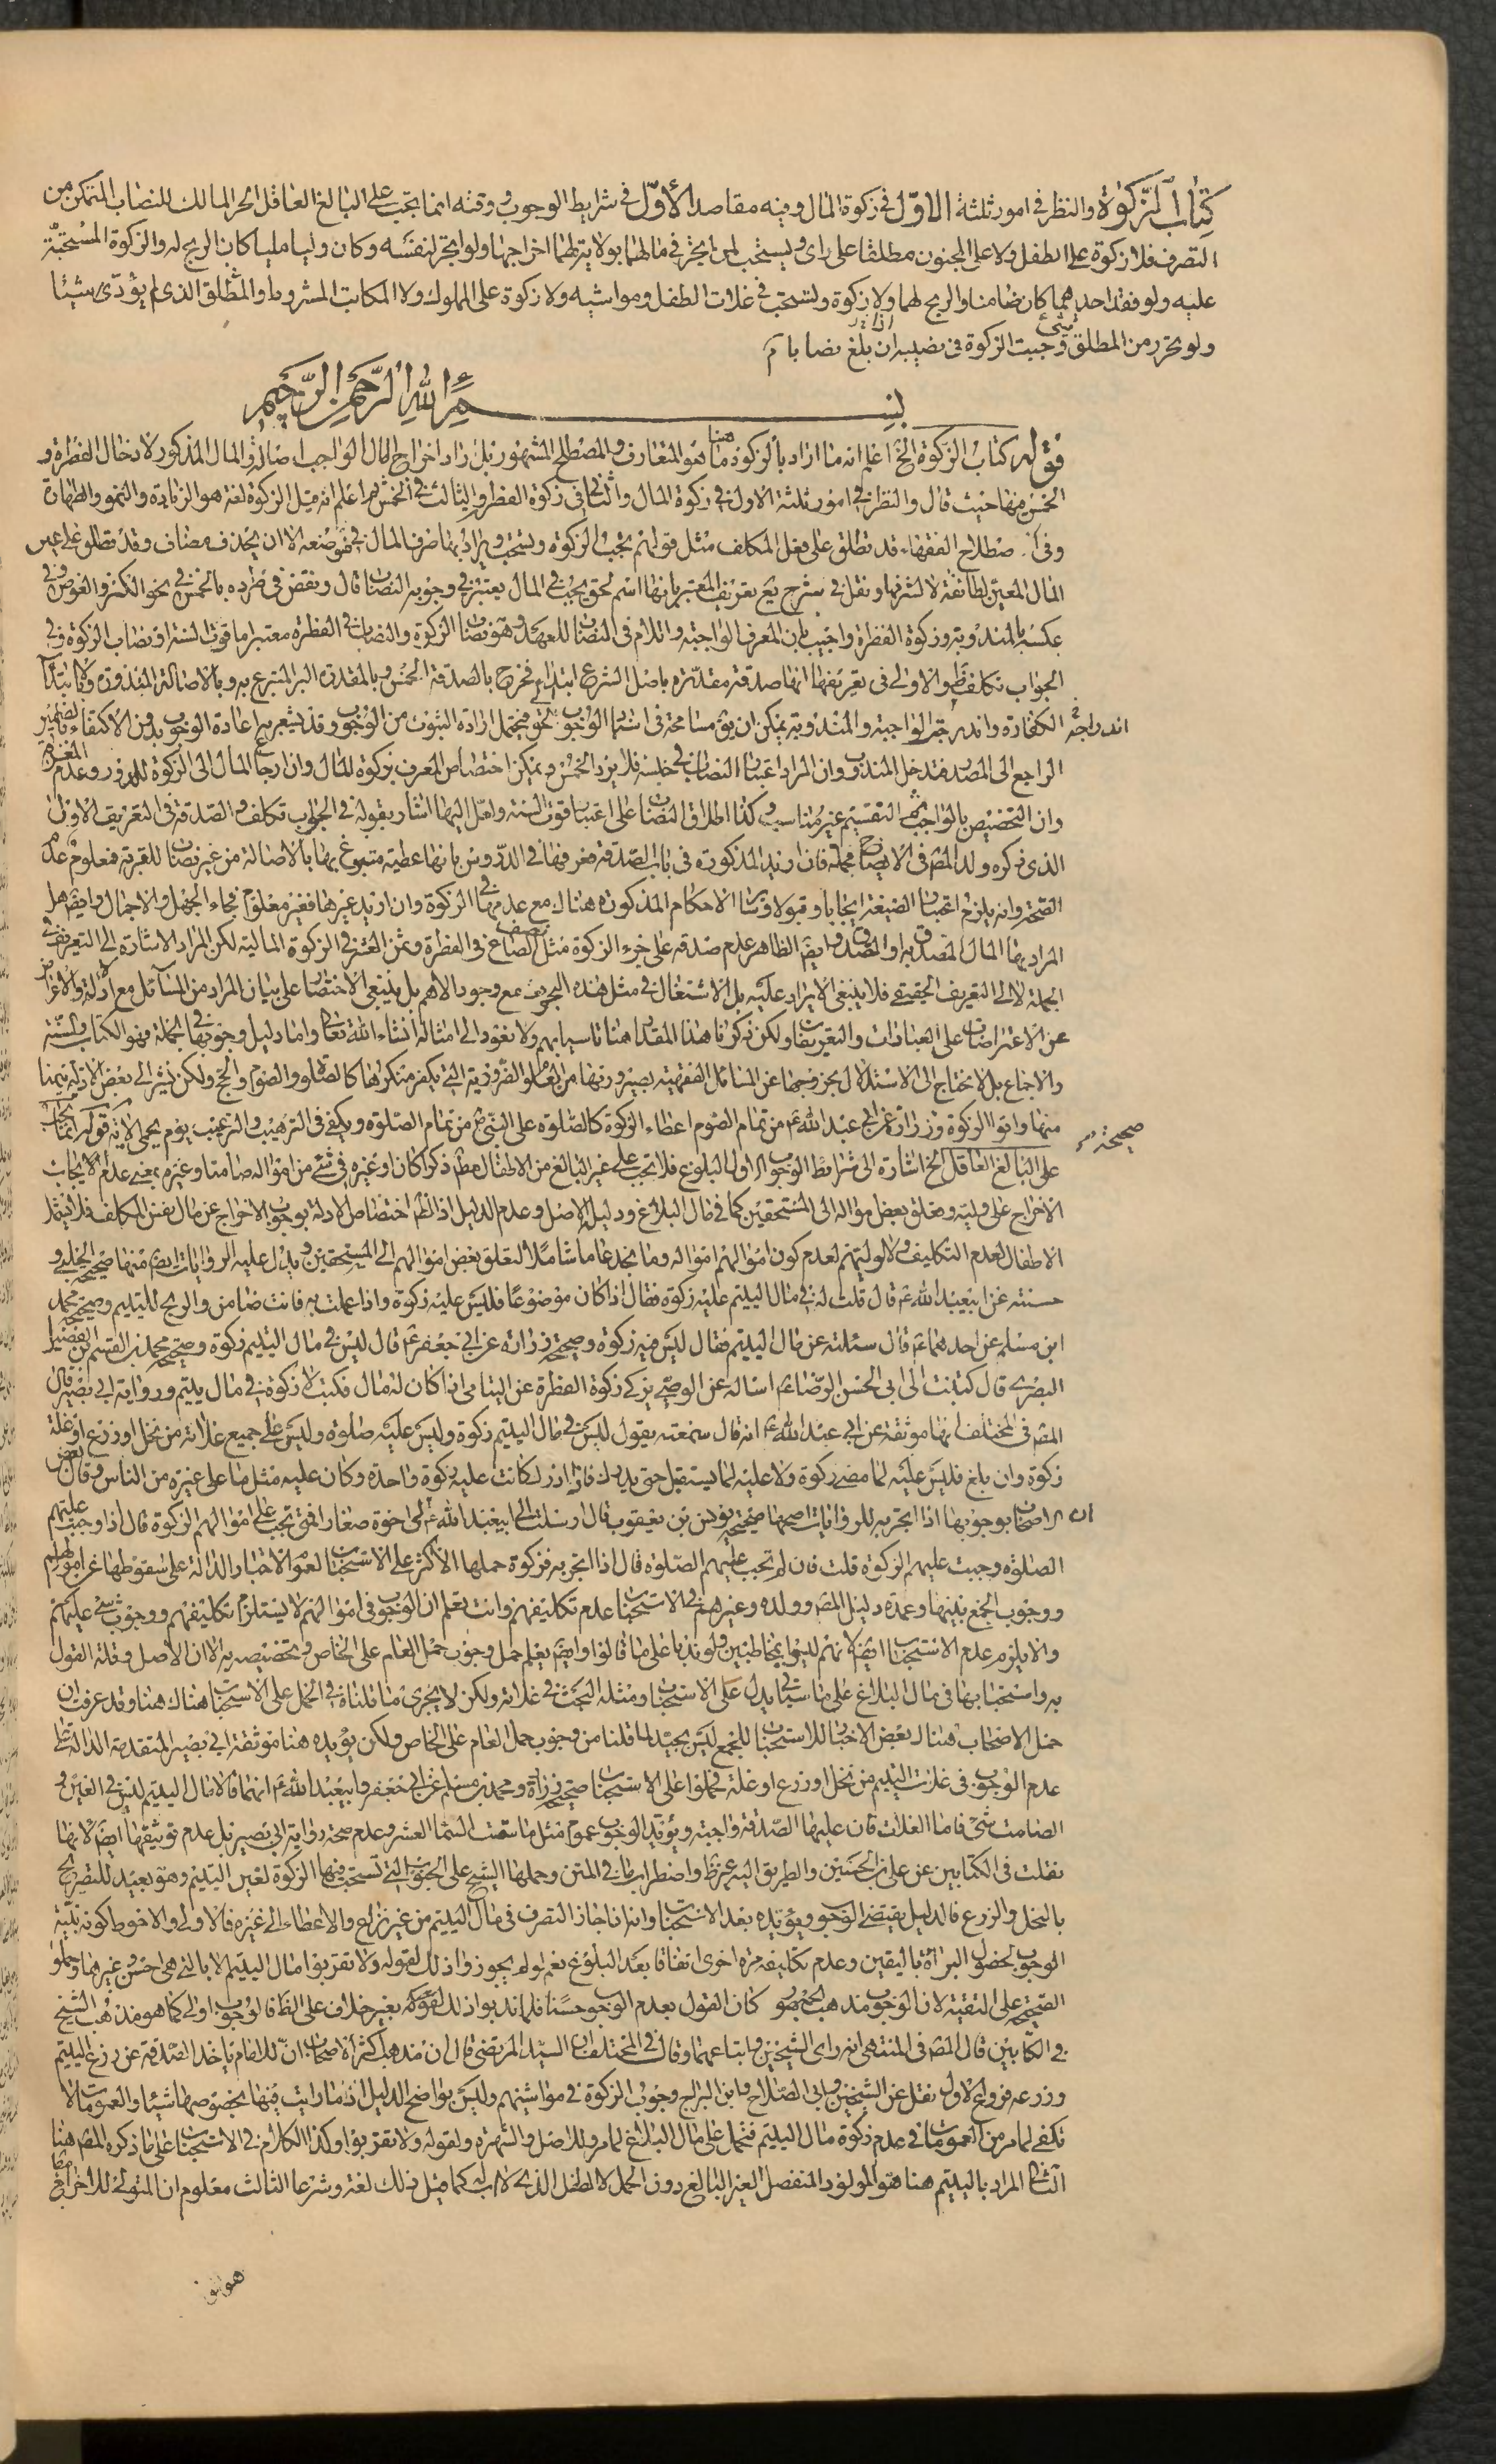 كتاب الزكوة والنظر في امور ثلثة الاوّل في زكوة المال وفيه مقاصد الأوّل في شرايط الوجوب ووقته انما يجب على البالغ العاقل الحر المالك للنصاب المتمكن من
التصرف فلا زكوة على الطفل ولا على المجنون مطلقا على راى ويستحب لمن اتجر في مالهما بولاية لهما اخراجها ولو اتجر لنفسه وكان وليا مليا كان الربح له والزكوة المستحبّة
عليه ولو فقد احدهما كان ضامنا والربح لهما ولا زكوة وتستحب في غلات الطفل ومواشيه ولا زكوة على المملوك ولا المكاتب المشروط والمطلق الذى لم يؤدّى شيئا
ولو تحرر من المطلق شئ وجبت الزكوة في نصيبه ان بلغ نصابا
بسم الله الرحمن الرحيم
قوله كتاب الزكوة الخ اعلم انه ما اراد بالزكوة هنا ما هو المتعارف والمصطلح المشهور بل اراد اخراج المال الواجب اصالة والمال المذكور لادخال الفطرة و
الخمس فيها حيث قال والنظر في امور ثلثة الاول في زكوة المال والثانى في زكوة الفطر والثالث في الخمس ثم اعلم انه قيل الزكوة لغة هو الزيادة والنمو والطهارة
وفى اصطلاح الفقهاء قد تطلق على فعل المكلف مثل قولهم يجب الزكوة ويستحب ويراد بها صرف المال في موضعه الا ان يحذف مضاف وقد تطلق على عين
المال المعين لطائفة لا لشرفها ونقل في شرح يع تعريف المعتبر بانها اسم لحق يجب في المال يعتبر في وجوبه النصاب قال ونقض في طرده بالخمس في نحو الكنز والغوص وفى
عكسه بالمندوبة وزكوة الفطرة واجيب بان المعرف الواجبة واللام في النصاب للعهد وهو نصاب الزكوة والنصاب في الفطرة معتبر اما قوت السنة او نصاب الزكوة وفى
الجواب تكلف ظ والاولى في تعريفها انها صدقة مقدّرة باصل الشرع ابتداء فخرج بالصدقة الخمس وبالمقدرة البر المتبرع به وبالاصالة المنذورة وبالابتداء
الكفارة واندرجت الواجبة والمندوبة يمكن ان يق مسامحة في اسم الوجوب لحق فيحتمل ارادة الثبوت من الوجوب وقد يشعر به اعادة الوجوب بدون الاكتفاء بالضمير
الراجع الى المصدر فتدخل المندوب وان المراد اعتبار النصاب في جنسه فلا يرد الخمس ويمكن اختصاص المعرف بزكوة المال وان ارجاع المال الى الزكوة للدور وعدم
وان التخصيص بالواجب ثم التقسيم غير مناسب وكذا اطلاق النصاب على اعتبار قوت السنة ولعل اليها اشار بقوله في الجواب تكلف والصدقة في التعريف الاول
الذى ذكره ولد المص في الايضاح مجملة فان اريد المذكورة في باب الصدقة فعرفها في الدروس بانها عطية متبرع بها بالاصالة من غير نصاب للقربة فمعلوم عدم
الصحة وانه يلزم اعتبار الصيغة ايجابا وقبولا وسائر الاحكام المذكورة هناك مع عدمها في الزكوة وان اريد غيرها فغير معلوم فجاء الجهل والاجمال وايضم هل
المراد بها المال المصدق به او التصدق وايضم الظاهر عدم صدقه على جزء الزكوة مثل نصف الصاع في الفطرة وثمن العشر في الزكوة المالية لكن المراد الاشارة الى التعريف في
الجملة لا الى التعريف الحقيقى فلا ينبغى الايراد عليه بل الاشتغال في مثل هذه البحوث مع وجود الاهم بل ينبغى الاختصار على بيان المراد من المسائل مع ادلة والاعراض
عن الاعتراضات على العبارات والتعريفات ولكن ذكرنا هذا المقدار هنا تاسيا بهم ولا نعود الى امثاله انشاء الله تعالى واما دليل وجوبها في الجملة فهو الكتاب والسنة
والاجماع بل لا نحتاج الى الاستدلال بخروجها عن المسائل الفقهية بصيرورتها من العلوم الضرورية التى يكفر منكرها كالصلوة والصوم والحج ولكن نشير الى بعض الادلة تيمنا
منها واتوا الزكوة وزرارة عن ابى عبد الله ع من تمام الصوم اعطاء الزكوة كالصلوة على النبى ص من تمام الصلوة ويكفى في الترهيب والترغيب يوم يحمى الاية قوله انما يجب
صحيحة
على البالغ العاقل الخ اشارة الى شرائط الوجوب الاول البلوغ فلا تجب على غير البالغ من الاطفال مطم ذكرا كان او غيره في شئ من امواله صامتا وغيره بمعنى عدم الايجاب
الاخراج على وليه وتعلق بعض امواله الى المستحقين كما في مال البالغ ودليله الاصل وعدم الدليل اذ الظم اختصاص الادلة بوجوب الاخراج عن مال نفس المكلف فلا يشمل
الاطفال لعدم التكليف ولا لوليهم لعدم كون اموالهم امواله وما نجد عاما شاملا لتعلق بعض اموالهم الى المستحقين ويدل عليه الروايات ايضم منها صحيحة الحلبى و
حسنته عن ابيعبد الله ع قال قلت له في مال اليتيم عليه زكوة فقال اذا كان موضوعا فليس عليه زكوة واذا عملت به فانت ضامن والربح لليتيم وصحيحة محمد
ابن مسلم عن احدهما ع قال سئلته عن مال اليتيم فقال ليس فيه زكوة وصحيحة زرارة عن ابى جعفر ع قال ليس في مال اليتيم زكوة وصحيحة محمد بن القسم بن الفضيل
البصرى قال كتبت الى ابى الحسن الرضا ع اساله عن الوصى يزكى زكوة الفطرة عن اليتامى اذا كان له مال فكتب لا زكوة في مال يتيم ورواية ابى بصير قال
المص في المختلف انها موثقة عن ابى عبد الله ع انه قال سمعته يقول ليس في مال اليتيم زكوة وليس عليه صلوة وليس على جميع غلاته من نخل او زرع او غلة
زكوة وان بلغ فليس عليه لما مضى زكوة ولا عليه لما يستقبل حتى يدرك فاذا ادرك كانت عليه زكوة واحدة وكان عليه مثل ما على غيره من الناس وقال بعض
الاصحاب بوجوبها اذا اتجر به للروايات اصحها صحيحة يونس بن يعقوب قال ارسلت الى ابيعبد الله ع ان لى اخوة صغارا فمتى تجب على اموالهم الزكوة قال اذا وجب عليهم
الصلوة وجبت عليهم الزكوة قلت فان لم تجب عليهم الصلوة قال اذا اتجر به فزكوة حملها الاكثر على الاستحباب لعموم الاخبار الدالة على سقوطها عن اموالهم
ووجوب الجمع بينها وعمدة دليل المص وولده وغيرهم في الاستحباب عدم تكليفهم وانت تعلم ان الوجوب في اموالهم لا يستلزم تكليفهم ووجوب شئ عليهم
والا يلزم عدم الاستحباب ايضم لانهم ليسوا بمخاطبين ولو ندبا على ما قالوا وايضم يعلم حمل وجوب حمل العام على الخاص وتخصيصه به الا ان الاصل وقلة القول
به واستحبابها في مال البالغ على ما سياتى يدل على الاستحباب ومثله البحث في غلاته ولكن لا يجرى ما قلناه في الحمل على الاستحباب هناك هنا وقد عرفت ان
حمل الاصحاب هناك بعض الاخبار للاستحباب للجمع ليس بجيد لما قلنا من وجوب حمل العام على الخاص ولكن يؤيده هنا موثقة ابى بصير المتقدمة الدالة على
عدم الوجوب في غلات اليتيم من نخل او زرع او غلة فحملوا على الاستحباب صحيحة زرارة ومحمد بن مسلم عن ابى جعفر وابيعبد الله ع انهما قالا مال اليتيم ليس في العين و
الصامت شئ فاما الغلات فان عليها الصدقة واجبة ويؤيد الوجوب عموم مثل ما سقت السماء العشر وعدم صحة رواية ابى بصير بل عدم توثيقها ايضم لانها
نقلت في الكتابين عن على بن الحسين والطريق اليه غير ظ واضطراب ما في المتن وحملها الشيخ على الحبوب التى تستحب فيها الزكوة لغير اليتيم وهو بعيد للتصريح
بالنخل والزرع فالدليل يقتضى الوجوب ويؤيده بعد الاستحباب وانه اذا جاز التصرف في مال اليتيم من غير نزاع والاعطاء الى غيره فالاولى والاحوط كونه بنية
الوجوب لحصول البراءة باليقين وعدم تكليفه مرة اخرى اتفاقا بعد البلوغ نعم لو لم يجوزوا ذلك لقوله ولا تقربوا مال اليتيم الا بالتى هى احسن وغيرها وحملوا
الصحيحة على التقية لان الوجوب مذهب الجمهور كان القول بعدم الوجوب حسنا فلما ندبوا ذلك بغير خلاف على الظ فالوجوب اولى كما هو مذهب الشيخ
في الكتابين قال المص في المنتهى انه راى الشيخين واتباعهما وقال في المختلف ان السيد المرتضى قال ان مذهب اكثر الاصحاب ان للامام ياخذ الصدقة عن زرع اليتيم
وزرعه فروع الاول نقل عن الشيخين وابى الصلاح وابن البراج وجوب الزكوة في مواشيهم وليس بواضح الدليل اذ ما رايت فيها بخصوصها شيئا والعمومات لا
تكفى لما مر من العمومات في عدم زكوة مال اليتيم فتحمل على مال البالغ لما مر وللاصل والشهرة ولقوله ولا تقربوا وكذا الكلام في الاستحباب على ما ذكره المص هنا
الثانى المراد باليتيم هنا هو المولود المنفصل الغير البالغ دون الحمل لا الطفل الذى لا اب له كما قيل ذلك لغة وشرعا الثالث معلوم ان المتولى للاخراج
هو الولى